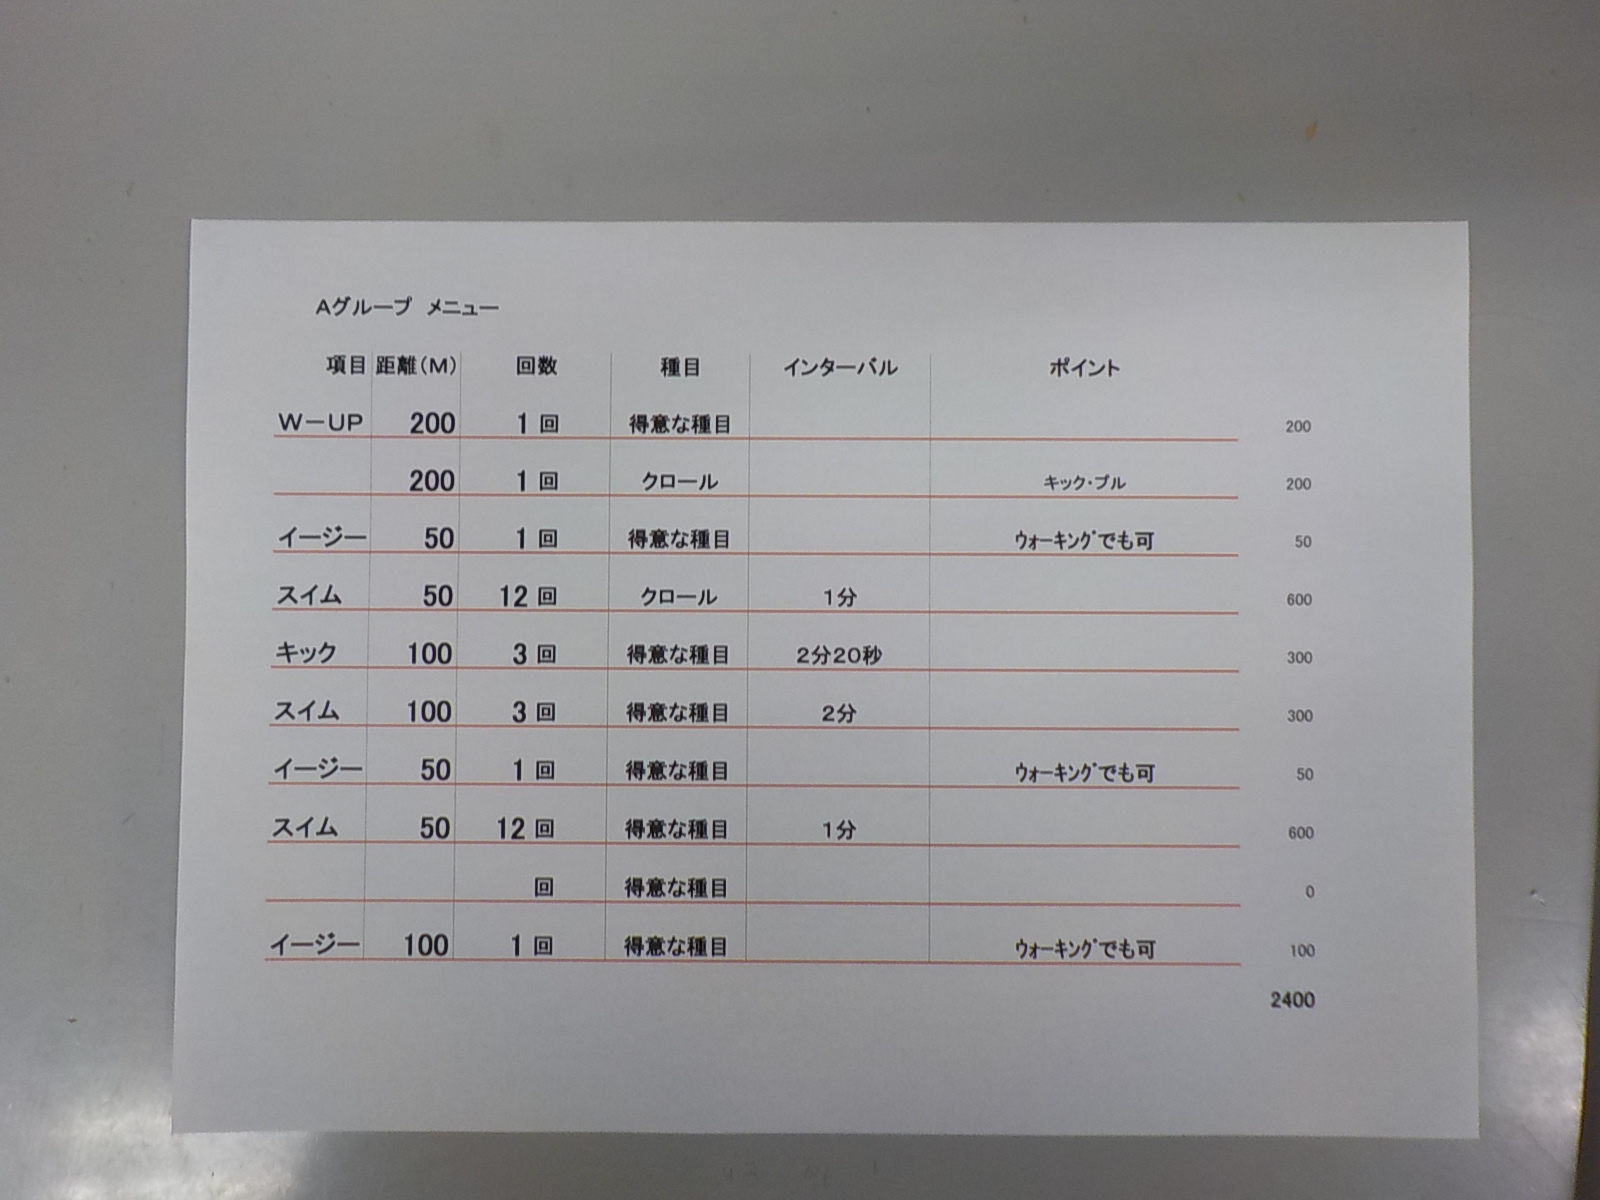 Aグループ メニュー
項目 距離(M) 回数 種目 インターバル ポイント
W-UP 200 1 回 得意な種目 200
200 1 回 クロール キック・プル 200
イージー 50 1 回 得意な種目 ウォーキングでも可 50
スイム 50 12 回 クロール 1分 600
キック 100 3 回 得意な種目 2分20秒 300
スイム 100 3 回 得意な種目 2分 300
イージー 50 1 回 得意な種目 ウォーキングでも可 50
スイム 50 12 回 得意な種目 1分 600
回 得意な種目 0
イージー 100 1 回 得意な種目 ウォーキングでも可 100
2400